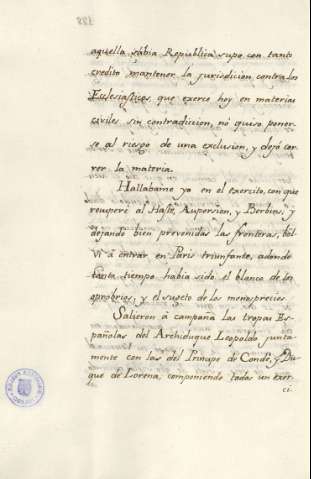 aquella sábia Republica supo con tanto
credito mantener la jurisdicion contra los
Eclesiasticos, que exerce hoy en materias
civiles sin contradiccion, nó quiso poner-
se al riesgo de una exclusion, y dejó cor-
rer la materia.
Hallabame yo en el exercito, con que
recuperé al Haste, Aupersien, y Berbins, y
dejando bien prevenidas las fronteras, bol-
vi á entrar en Paris triunfante, adonde
tanto tiempo habia sido el blanco de los
oprobrios, y el sugeto de los menosprecios
Salieron á campaña las tropas Es-
pañolas del Archiduque Leopoldo junta-
mente con las del Principe de Condé, y Du-
que de Lorena, componiendo todas un exer-
ci